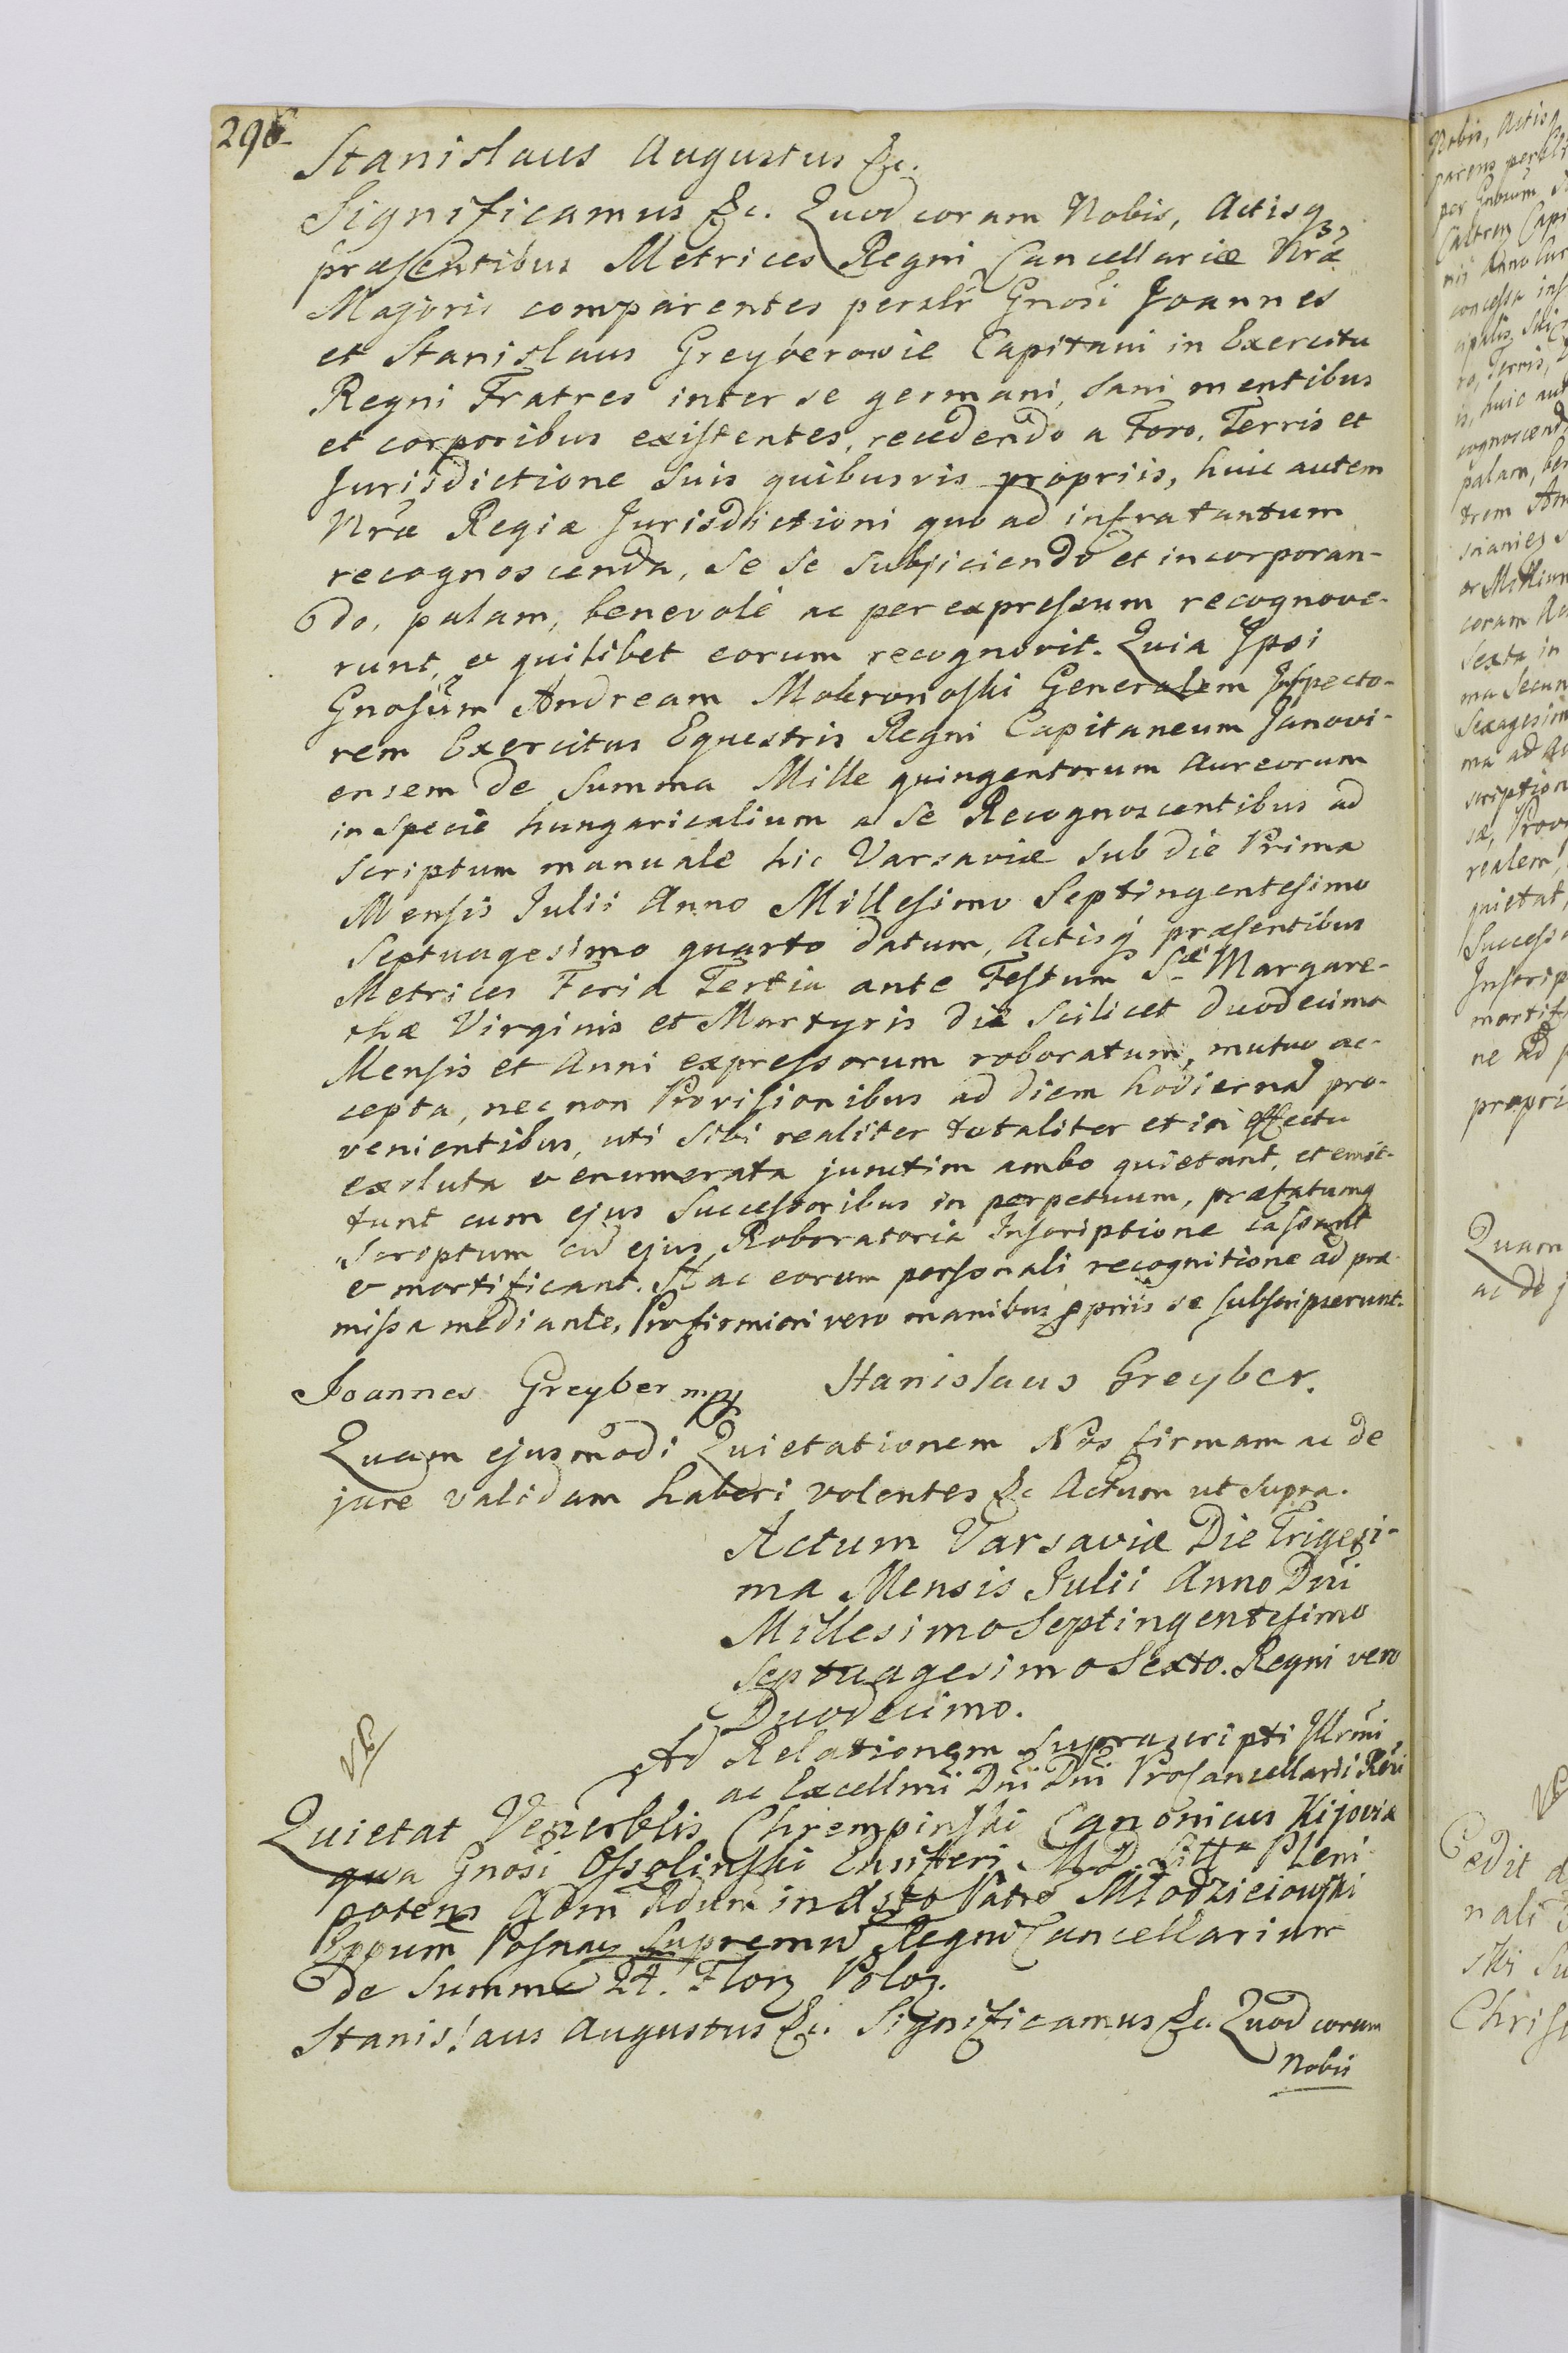 296.
Stanislaus Augustus &c.
Significamus &c. Quod coram Nobis, Actisq3
præsentibus Metrices Regni Cancellariæ Nræ
Majoris comparentes peralr Gnosi Joannes
et Stanislaus Greyberowie Capitani in Exercitu
Regni Fratres inter se germani, sani mentibus
et corporibus existentes, recedendo a Foro, Terris et
Jurisdictione suis quibusvis propriis, huic autem
Nræ Regiæ Jurisdictioni quo ad infratantum
recognoscenda, se se subjiciendo et incorporan-
do, palam, benevolè ac per expressum recognove-
runt, & quilibet eorum recognovit. Quia Ipsi
Gnosum Andream Mokronoski Generalem Inspecto-
rem Exercitus Equestris Regni Capitaneum Janovi-
ensem de Summa Mille quingentorum Aureorum
in specie hungaricalium a se Recognoscentibus ad
scriptum manuale hic Varsaviæ sub die Prima
Mensis Julii Anno Millesimo Septingentesimo
Septuagesimo quarto datum, Actisq præsentibus
Metrices Feria Tertia ante Festum Sæ Margare-
thæ Virginis et Martyris die scilicet duodecima
Mensis et Anni expressorum roboratum, mutuo ac-
cepta, nec non Provisionibus ad diem hodiernã pro-
venientibus, uti sibi realiter totaliter et in effectu
exoluta & enumerata junctim ambo quietant, et emit-
tunt cum ejus Successoribus in perpetuum, præfatumq
Scroptum cũ ejus Roboratoria Inscriptione cassant
& mortificant. Hac eorum personali recognitione ad præ-
missa mediante, Pro firmiori vero manibus ppriis se subscripserunt.
Joannes Greyber mpp Stanislaus Greyber.
Quam ejusmodi Quietationem Nos firmam ac de
jure validam haberi volentes &c Actum ut supra.
Actum Varsaviæ Die Trigesi-
ma Mensis Julii Anno Dni
Millesimo Septingentesimo
Septuagesimo Sexto. Regni vero
Duodecimo.
Ad Relationem suprascripti Illrmi
ac Excellmi Dni Dni Procancellarii Rni
Quietat Venerblis Chrempinski Canonicus Kijoviæ
qua Gnosi Ossolinski Ensiferi M. D. Littæ Pleni-
potens Adm Rdum in Xsto Patre Młodzieiowski
Eppum Posnan Supremũ Regni Cancellarium
de Summa 24. Flor Polo.
Stanislaus Augustus &c. Significamus &c. Quod coram
Nobis